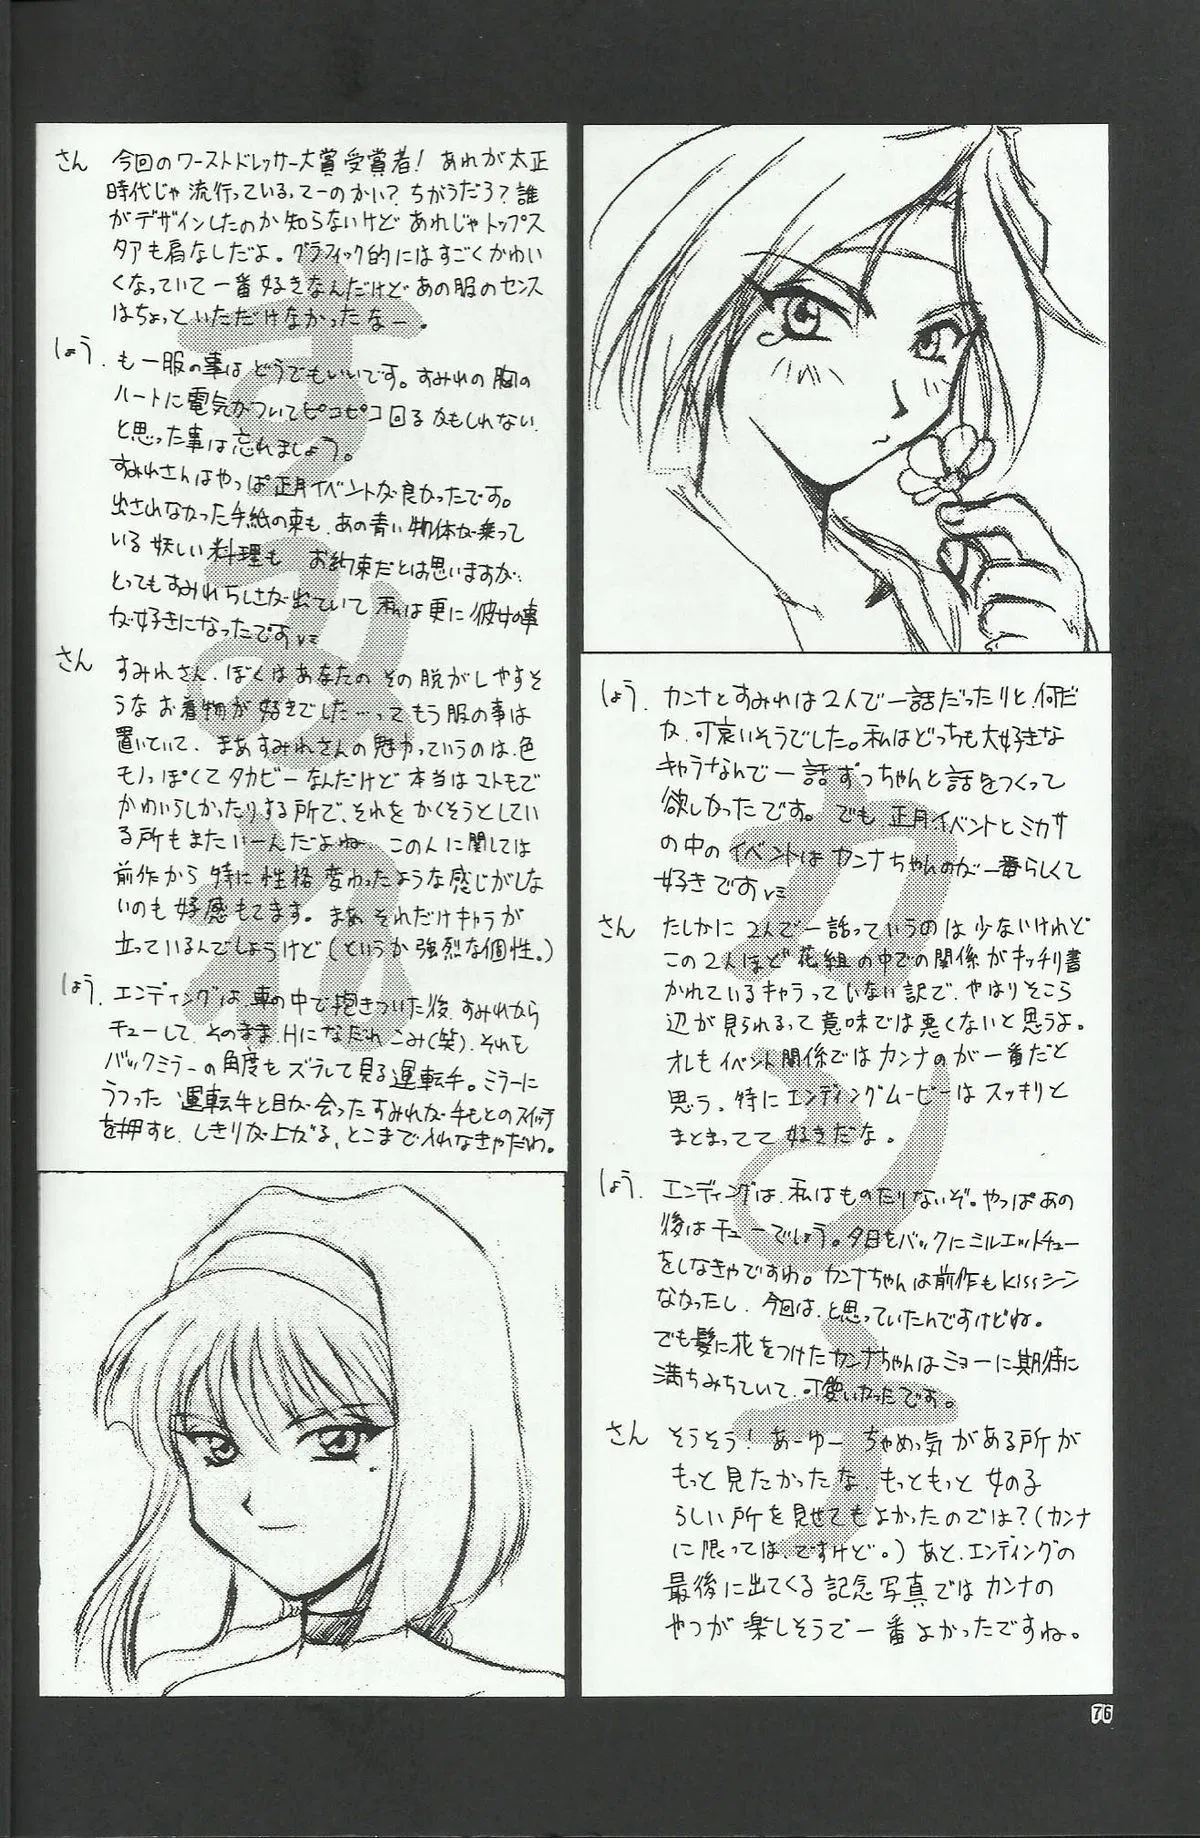 さん 今回のワーストドレッサー大賞受賞者! あれが太正
時代じゃ流行っているってーのかい? ちがうだろ? 誰
がデザインしたのか知らないけど あれじゃトップス
タアも肩なしだよ。グラフィック的にはすごくかわい
くなっていて一番好きなんだけど あの服のセンス
はちょっといただけなかったなー。
しょう. も一服の事はどうでもいいです。すみれの胸の
ハートに電気がついてピコピコ回るかもしれない.
と思った事は忘れましょう。
すみれさんはやっぱ正月イベントが良かったです。
出されなかった手紙の束も、あの青い物体が乗って
いる妖しい料理も お約束だとは思いますが..
とってもすみれらしさが出ていて 私は更に彼女の事
が好きになったです
さん すみれさん、ぼくはあなたの その脱がしやすそ
うな お着物が好きでした…ってもう服の事は
置いていて、まあすみれさんの魅力っていうのは、色
モノっぽくてタカビーなんだけど本当はマトモで
かわいらしかったりする所で、それをかくそうとしてい
る所もまたいーんだよね. この人に関しては
前作から特に性格変わったような感じがしな
いのも好感もてます。まあ それだけキャラが
立っているんでしょうけど(というか強烈な個性。)
しょう. エンディングは、車の中で抱きついた後、すみれから
チューして、そのままHになだれこみ(笑). それを
バックミラーの角度をズラして見る運転手。ミラーに
うつった 運転手と目が会ったすみれが手もとのスイッチ
を押すと、しきりが上がる、とこまで入れなきゃだわ。
しょう. カンナとすみれは2人で一話だったりと、何だ
か、可哀いそうでした。私はどっちも大好きな
キャラなんで一話ずっちゃんと話をつくって
欲しかったです。でも 正月イベントとミカサ
の中のイベントはカンナちゃんのが一番らしくて
好きです
さん たしかに2人で一話っていうのは少ないけれど
この2人ほど花組の中での関係がキッチリ書
かれているキャラっていない訳で、やはりそこら
辺が見られるって意味では悪くないと思うよ。
オレもイベント関係ではカンナのが一番だと
思う。特にエンディングムービーはスッキリと
まとまってて 好きだな。
しょう. エンディングは、私はものたりないぞ。やっぱあの
後はチューでしょう。夕日をバックにミルエットチュー
をしなきゃですわ。カンナちゃんは前作もkissシーン
なかったし、今回は、と思っていたんですけどね。
でも髪に花をつけたカンナちゃんはミョーに期待に
満ちみちていて、可愛いかったです。
さん そうそう! あーゆー ちゃめっ気がある所が
もっと見たかったな. もっともっと 女の子
らしい所を見せてもよかったのでは?(カンナ
に限っては、ですけど。) あと、エンディングの
最後に出てくる記念写真ではカンナの
やつが楽しそうで一番よかったですね。
すみれ
カンナ
76